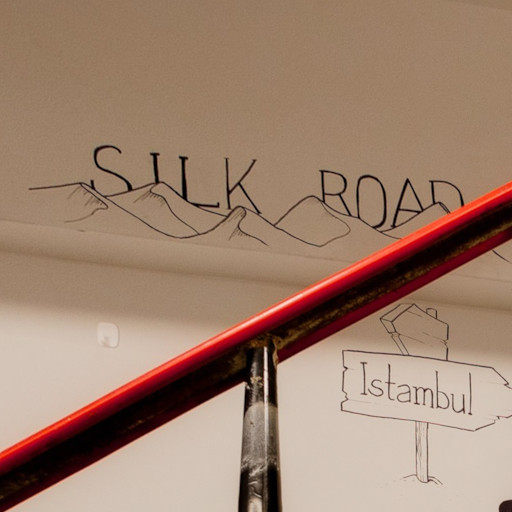 SILK ROAD
Istambul